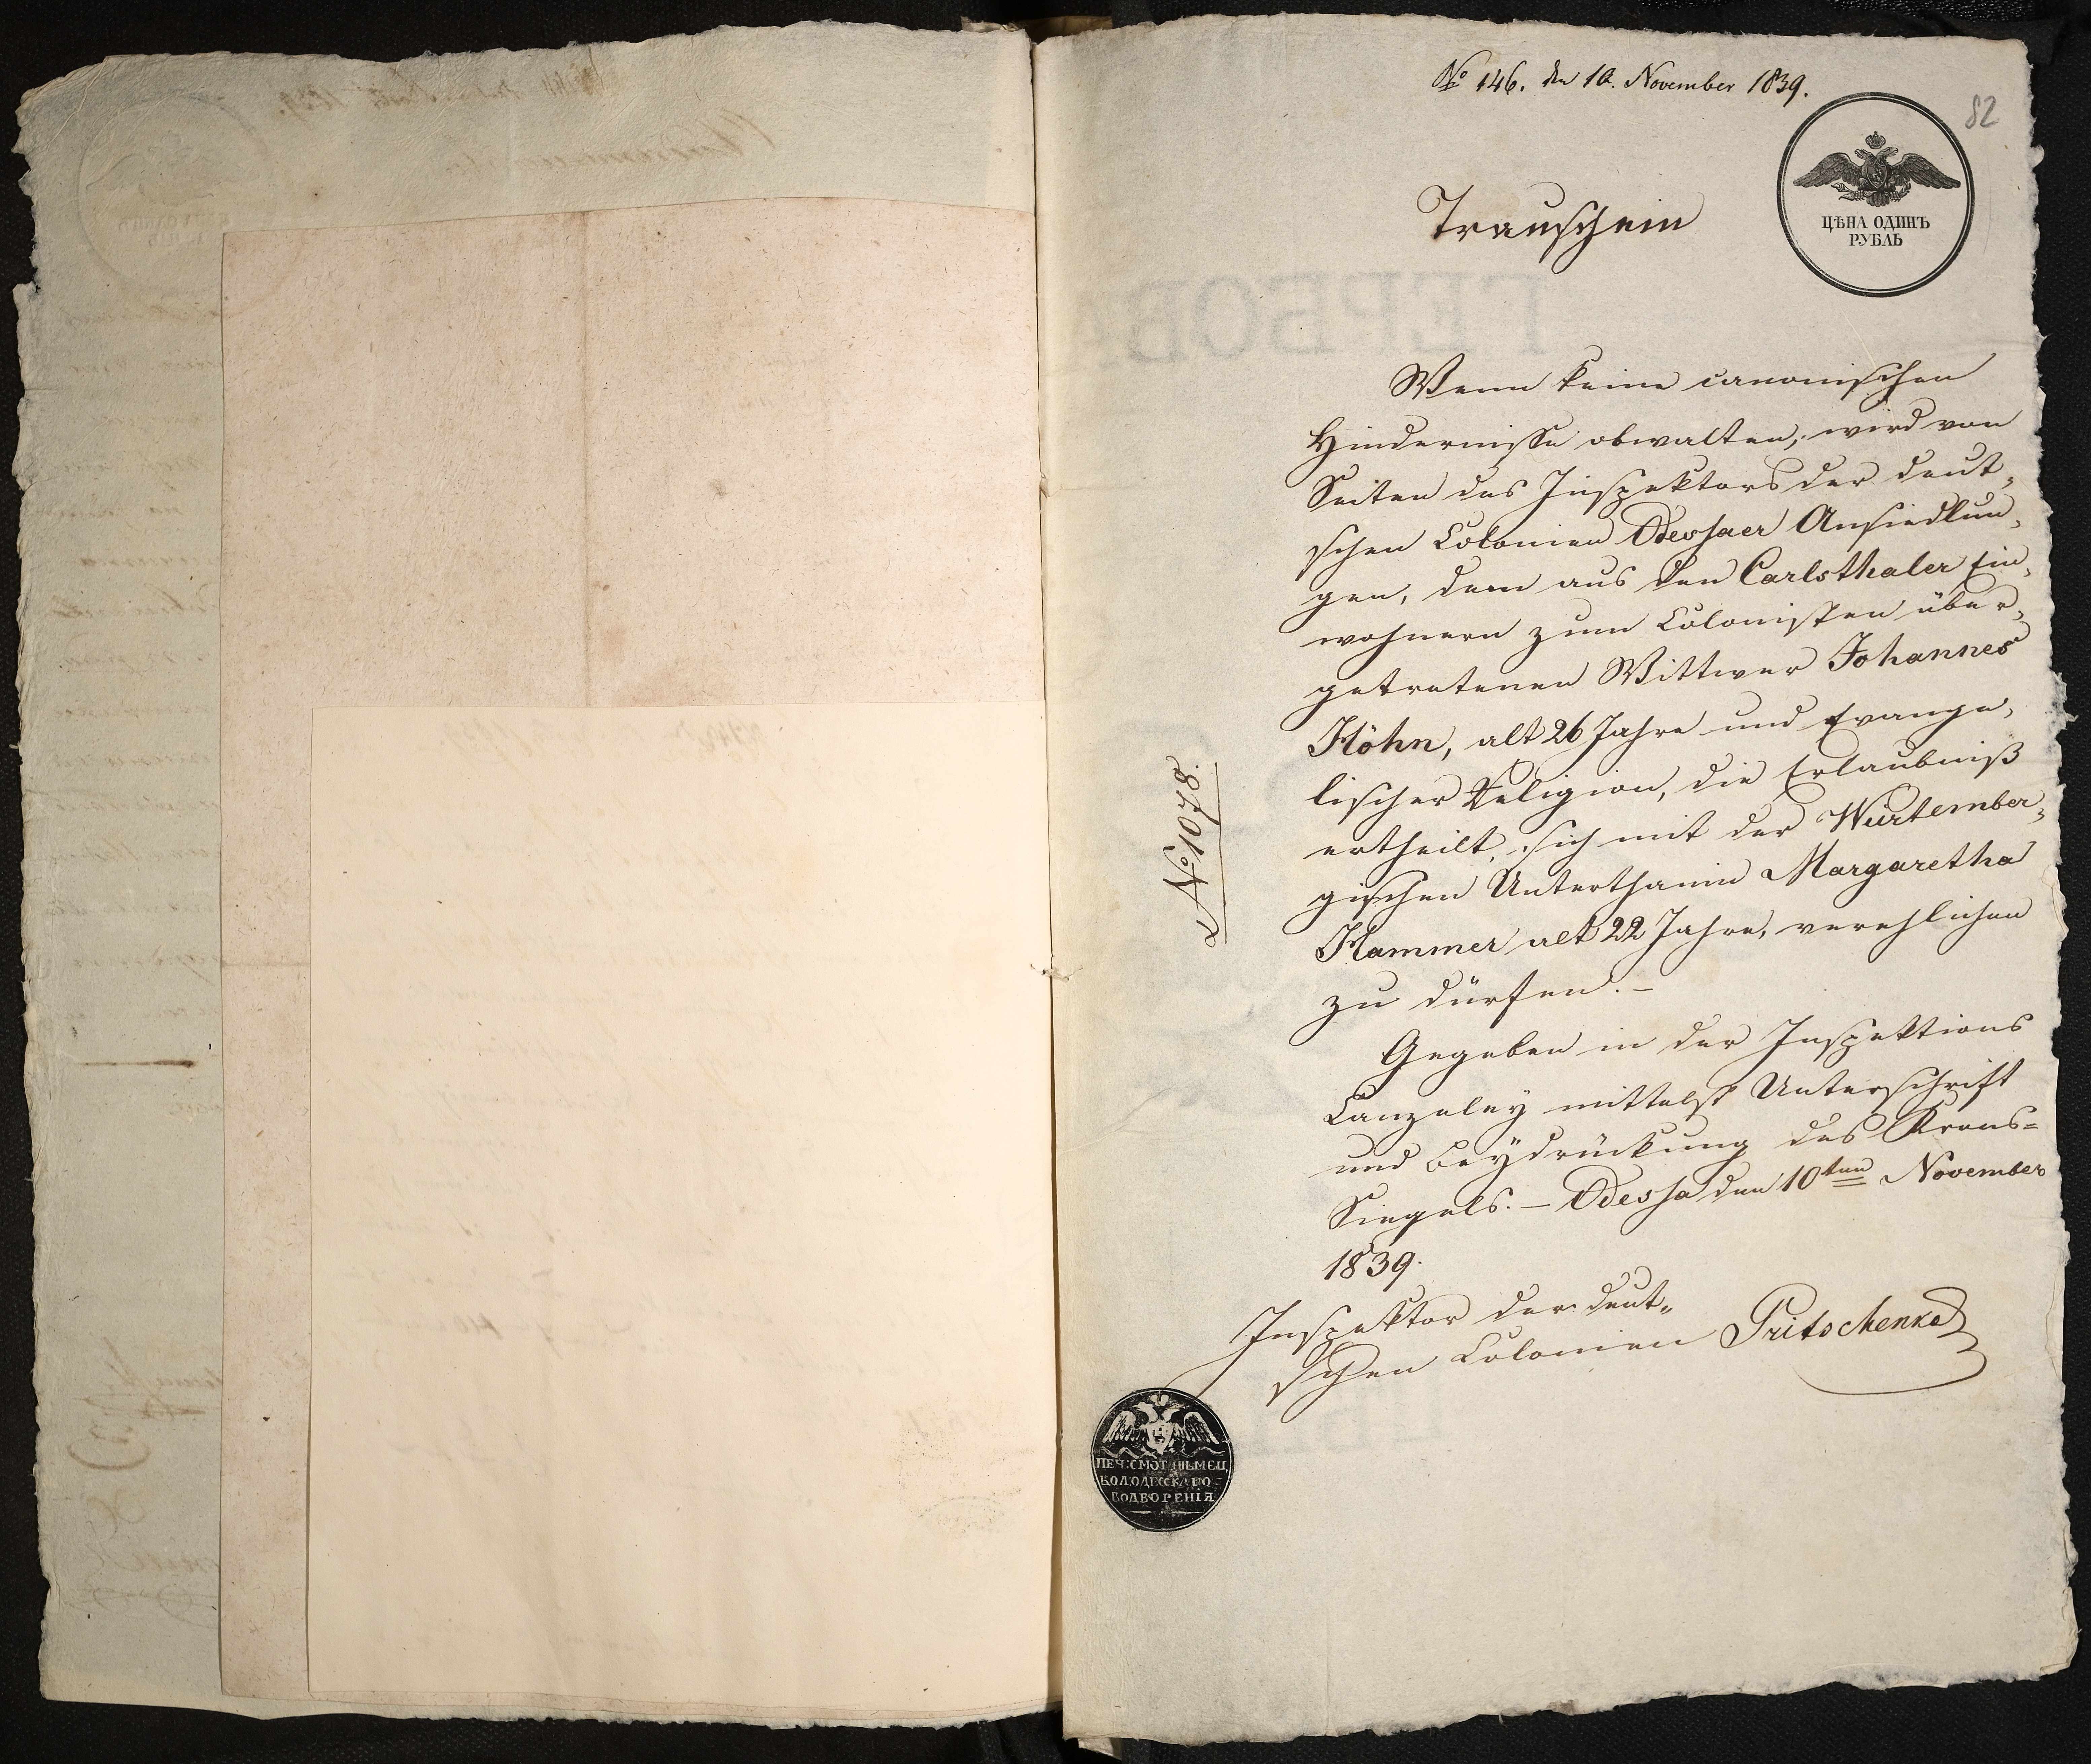 № 146. den 10. November 1839.
82
ЦѢНА ОДИНЪ
РУБЛЬ
Trauschein
Wenn keine canonischen
Hindernisse obwalten, wird von
Seiten des Inspektors der deut„
schen Colonien Odessaer Ansiedlun„
gen, dem aus den Carlsthaler Ein„
wohnern zum Colonisten über„
getretenen Wittwer Johannes
Höhn, alt 26 Jahre und Evange„
lischer Religion, die Erlaubniß
ertheilt, sich mit der Würtember„
gischen Unterthanin Margaretha
Hammer alt 22 Jahre, verehlichen
zu dürfen. –
№ 1078.
Gegeben in der Inspektions
Canzeley mittelst Unterschrift
und Beydrückung des Krons=
Siegels. – Odessa den 10ten November
1839.
Inspektor der deut„
schen Colonien Pritschenko
ПЕЧ: СМОТ: НѢМЕЦ
КОЛ ОДЕССКАГО
ВОДВОРЕНІЯ